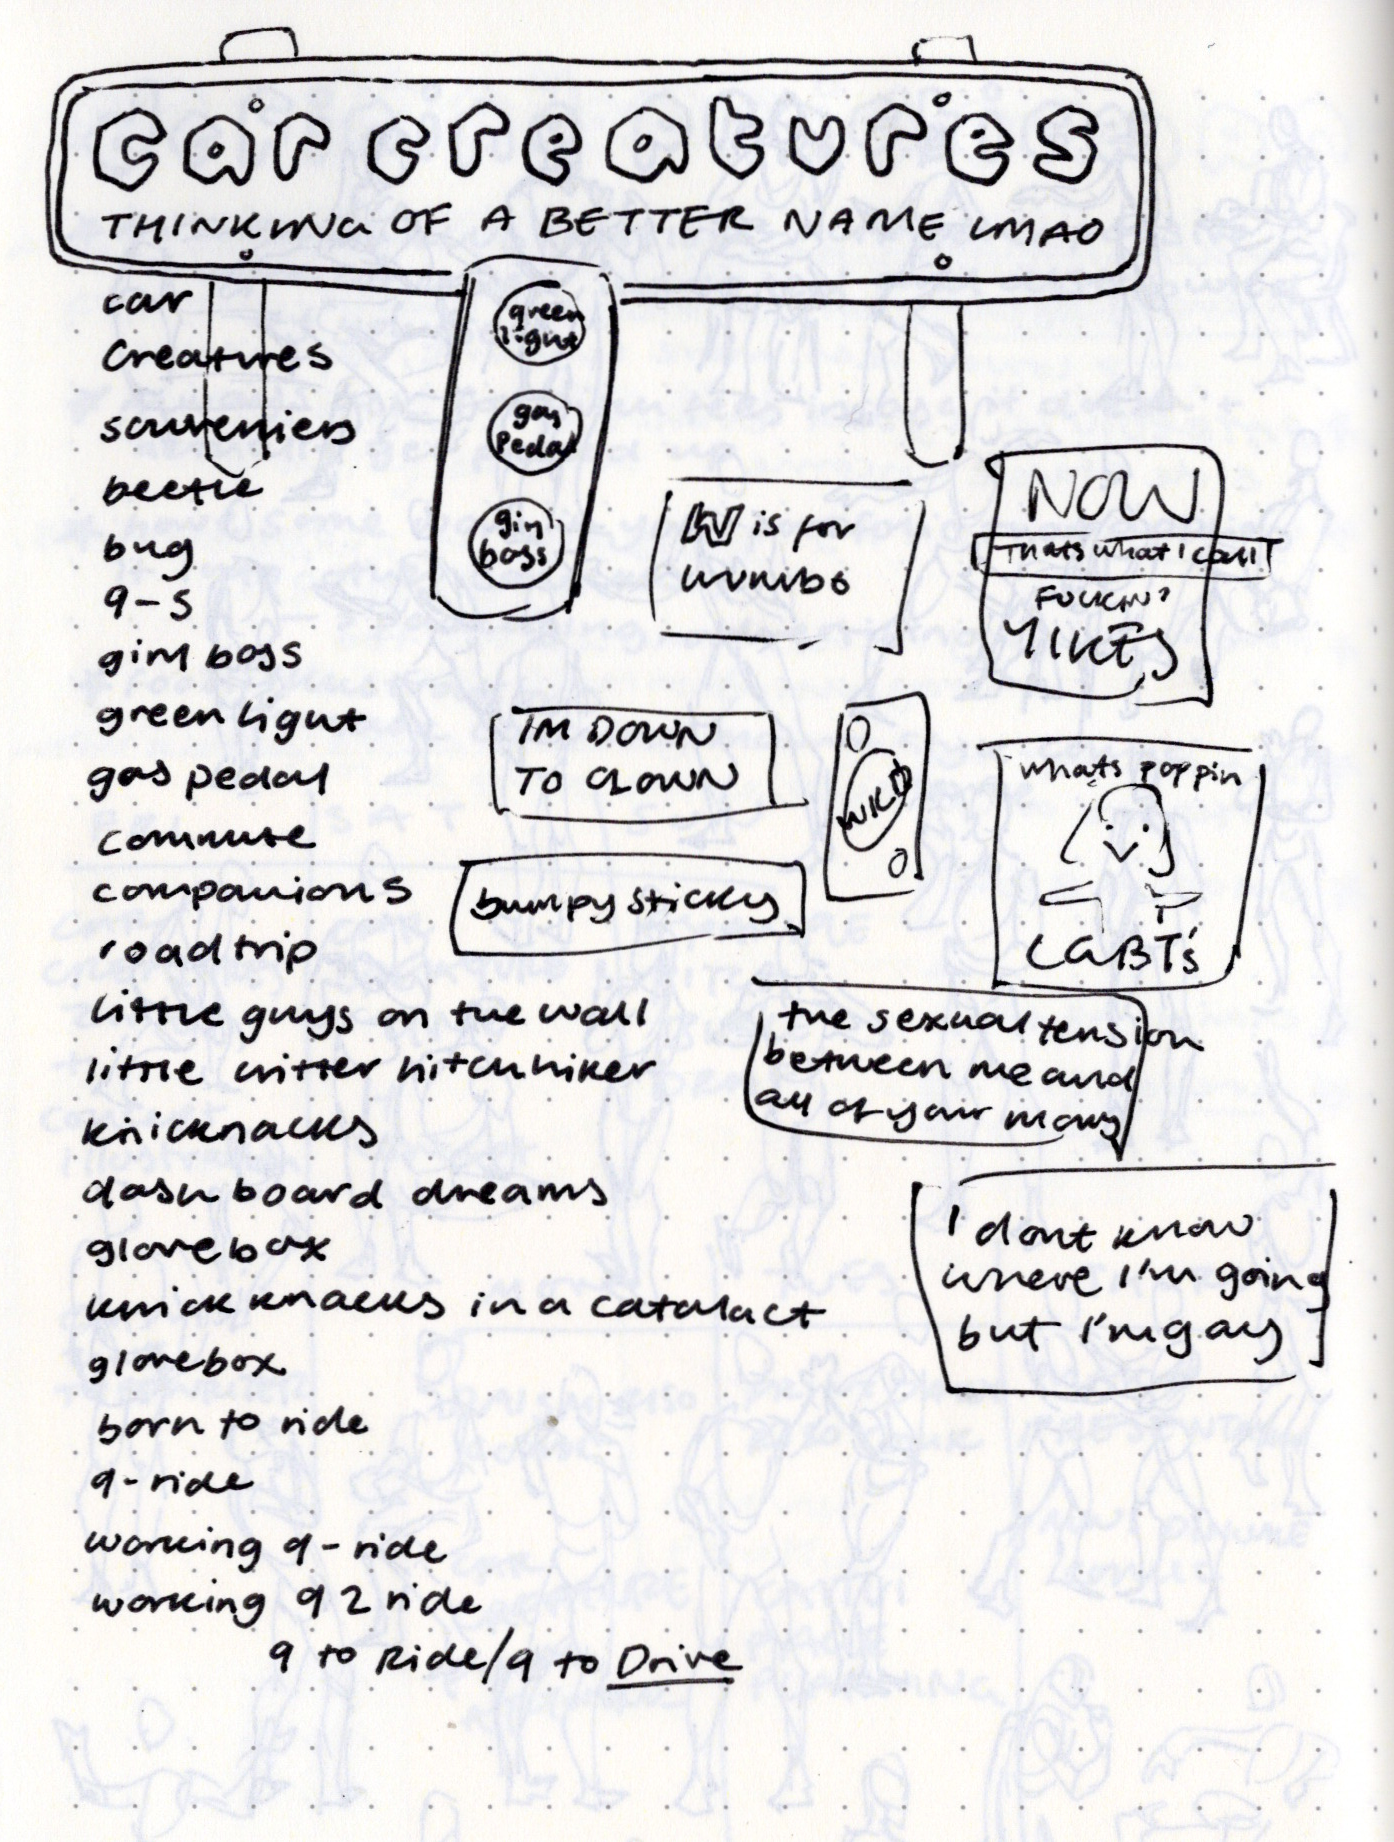 car creatures
THINKING OF A BETTER NAME LMAO
car
creatures
souveniers
beetle
bug
9-5
girl boss
green light
gas pedal
commute
companions
road trip
little guys on the wall
little critter hitchhiker
knicknacks
dashboard dreams
glovebox
knick knacks in a
glovebox
born to ride
9-ride
working 9-ride
working 9 2 ride
9 to Ride/9 to Drive
green
light
gas
pedal
girl
boss
W is for
wumbo
NOW
thats what I call
FUCKIN'
YIKES
IM DOWN
TO CLOWN
WKD
whats poppin
LGBT's
bumpy sticky
the sexual tension
between me and
all of your
I dont know
where I'm going
but I'm gay